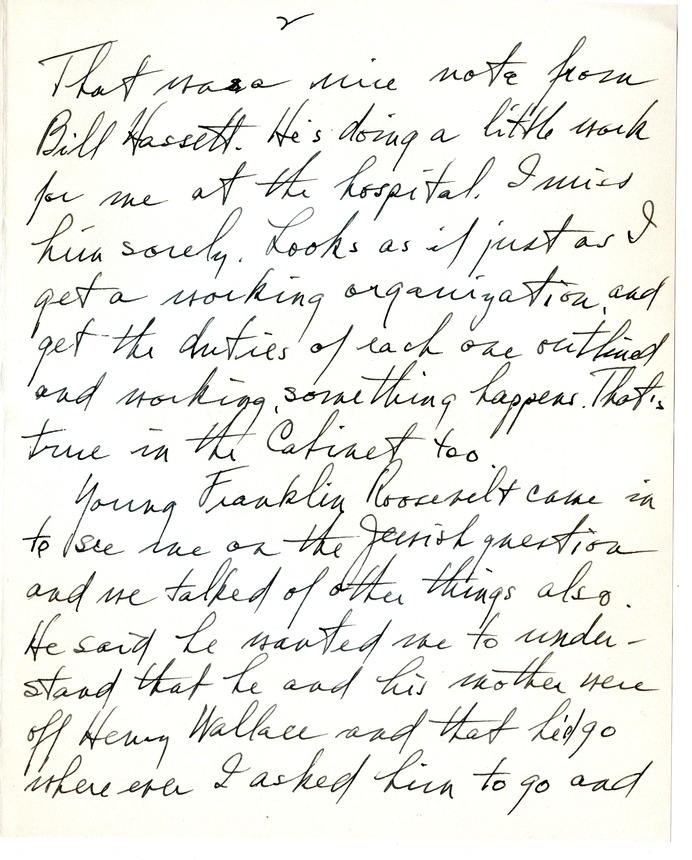 2
That was a nice note from
Bill Hassett. He's doing a little work
for me at the hospital. I miss
him sorely. Looks as if just as I
get a working organization, and
get the duties of each one outlined
and working, something happens. That's
true in the Cabinet too
Young Franklin Roosevelt came in
to see me on the Jewish question
and we talked of other things also.
He said he wanted me to under-
stand that he and his mother were
off Henry Wallace and that he'd go
where ever I asked him to go and